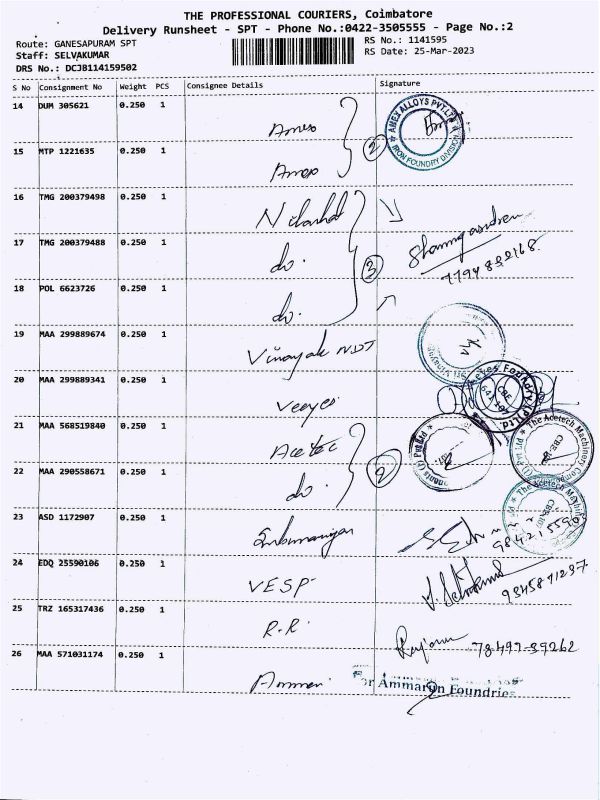 THE PROFESSIONAL COURIERS, Coimbatore
Delivery Runsheet - SPT - Phone No.:0422-3505555 - Page No.:2
Route: GANESAPURAM SPT
RS No.: 1141595
Staff: SELVAKUMAR
RS Date: 25-Mar-2023
DRS No.: DCJB114159502
S No Consignment No Weight PCS Consignee Details Signature
14 DUM 305621 0.250 1
AMEX ALLOYS PVT.LTD
IRON FOUNDRY DIVISION
15 MTP 1221635 0.250 1 2
16 TMG 200379498 0.250 1
17 TMG 200379488 0.250 1 do. 3
18 POL 6623726 0.250 1 do.
19 MAA 299889674 0.250 1 Vinayak NDT
20 MAA 299889341 0.250 1 Veeyes
21 MAA 568519840 0.250 1 Acetec
The Acetech Machinery
22 MAA 290558671 0.250 1 do. 2
23 ASD 1172907 0.250 1
24 EDQ 25590106 0.250 1 VESP
25 TRZ 165317436 0.250 1 R.R 78497-39262
26 MAA 571031174 0.250 1
For Ammarun Foundries